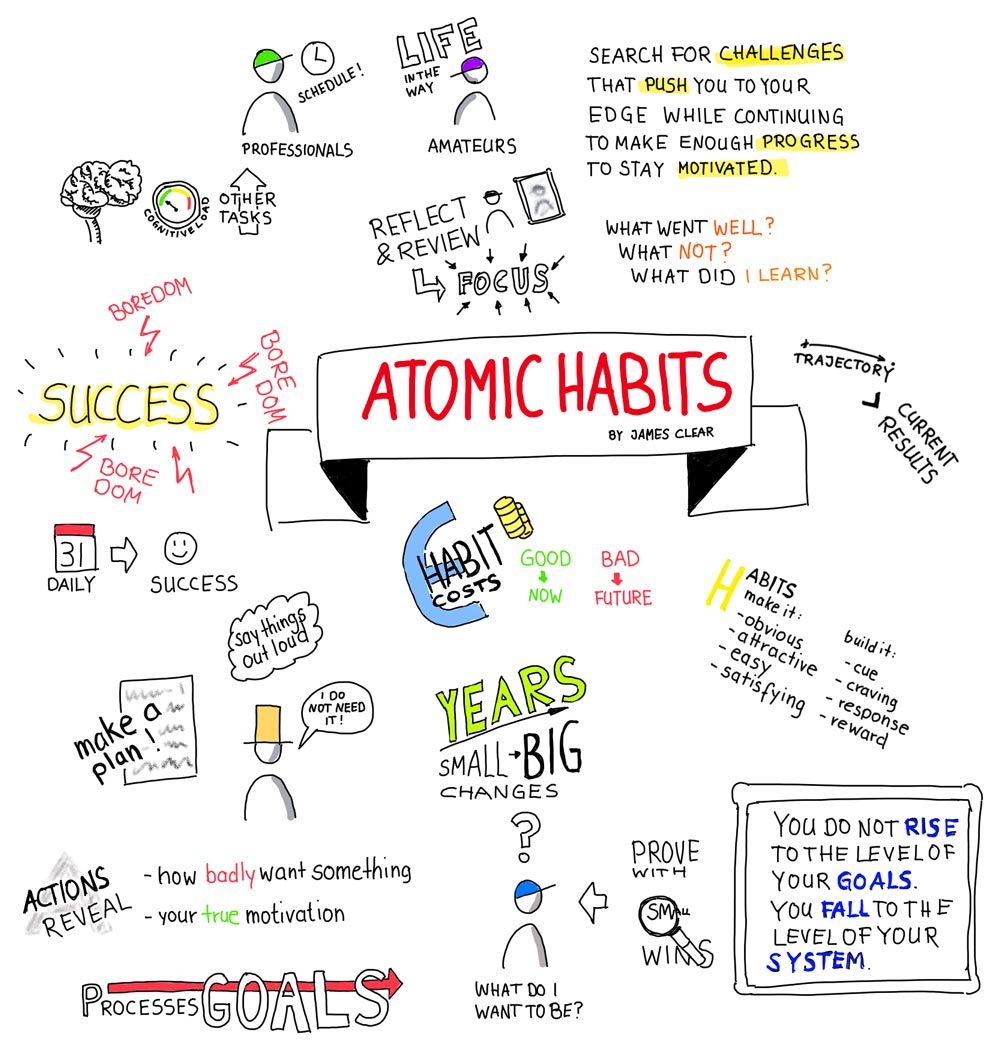 SCHEDULE!
PROFESSIONALS
LIFE
IN THE
WAY
AMATEURS
SEARCH FOR CHALLENGES
THAT PUSH YOU TO YOUR
EDGE WHILE CONTINUING
TO MAKE ENOUGH PROGRESS
TO STAY MOTIVATED.
COGNITIVE LOAD
OTHER
TASKS
REFLECT
& REVIEW
FOCUS
WHAT WENT WELL?
WHAT NOT?
WHAT DID I LEARN?
BOREDOM
BORE
DOM
SUCCESS
BORE
DOM
ATOMIC HABITS
BY JAMES CLEAR
TRAJECTORY
CURRENT
RESULTS
31
DAILY
SUCCESS
HABIT
COSTS
GOOD
NOW
BAD
FUTURE
HABITS
make it:
-obvious
-attractive
-easy
-satisfying
build it:
-cue
-craving
-response
-reward
say things
out loud
make a
plan!
I DO
NOT NEED
IT!
YEARS
SMALL BIG
CHANGES
ACTIONS
REVEAL
-how badly want something
-your true motivation
PROCESSES GOALS
?
WHAT DO I
WANT TO BE?
PROVE
WITH
SMALL
WINS
YOU DO NOT RISE
TO THE LEVEL OF
YOUR GOALS.
YOU FALL TO THE
LEVEL OF YOUR
SYSTEM.